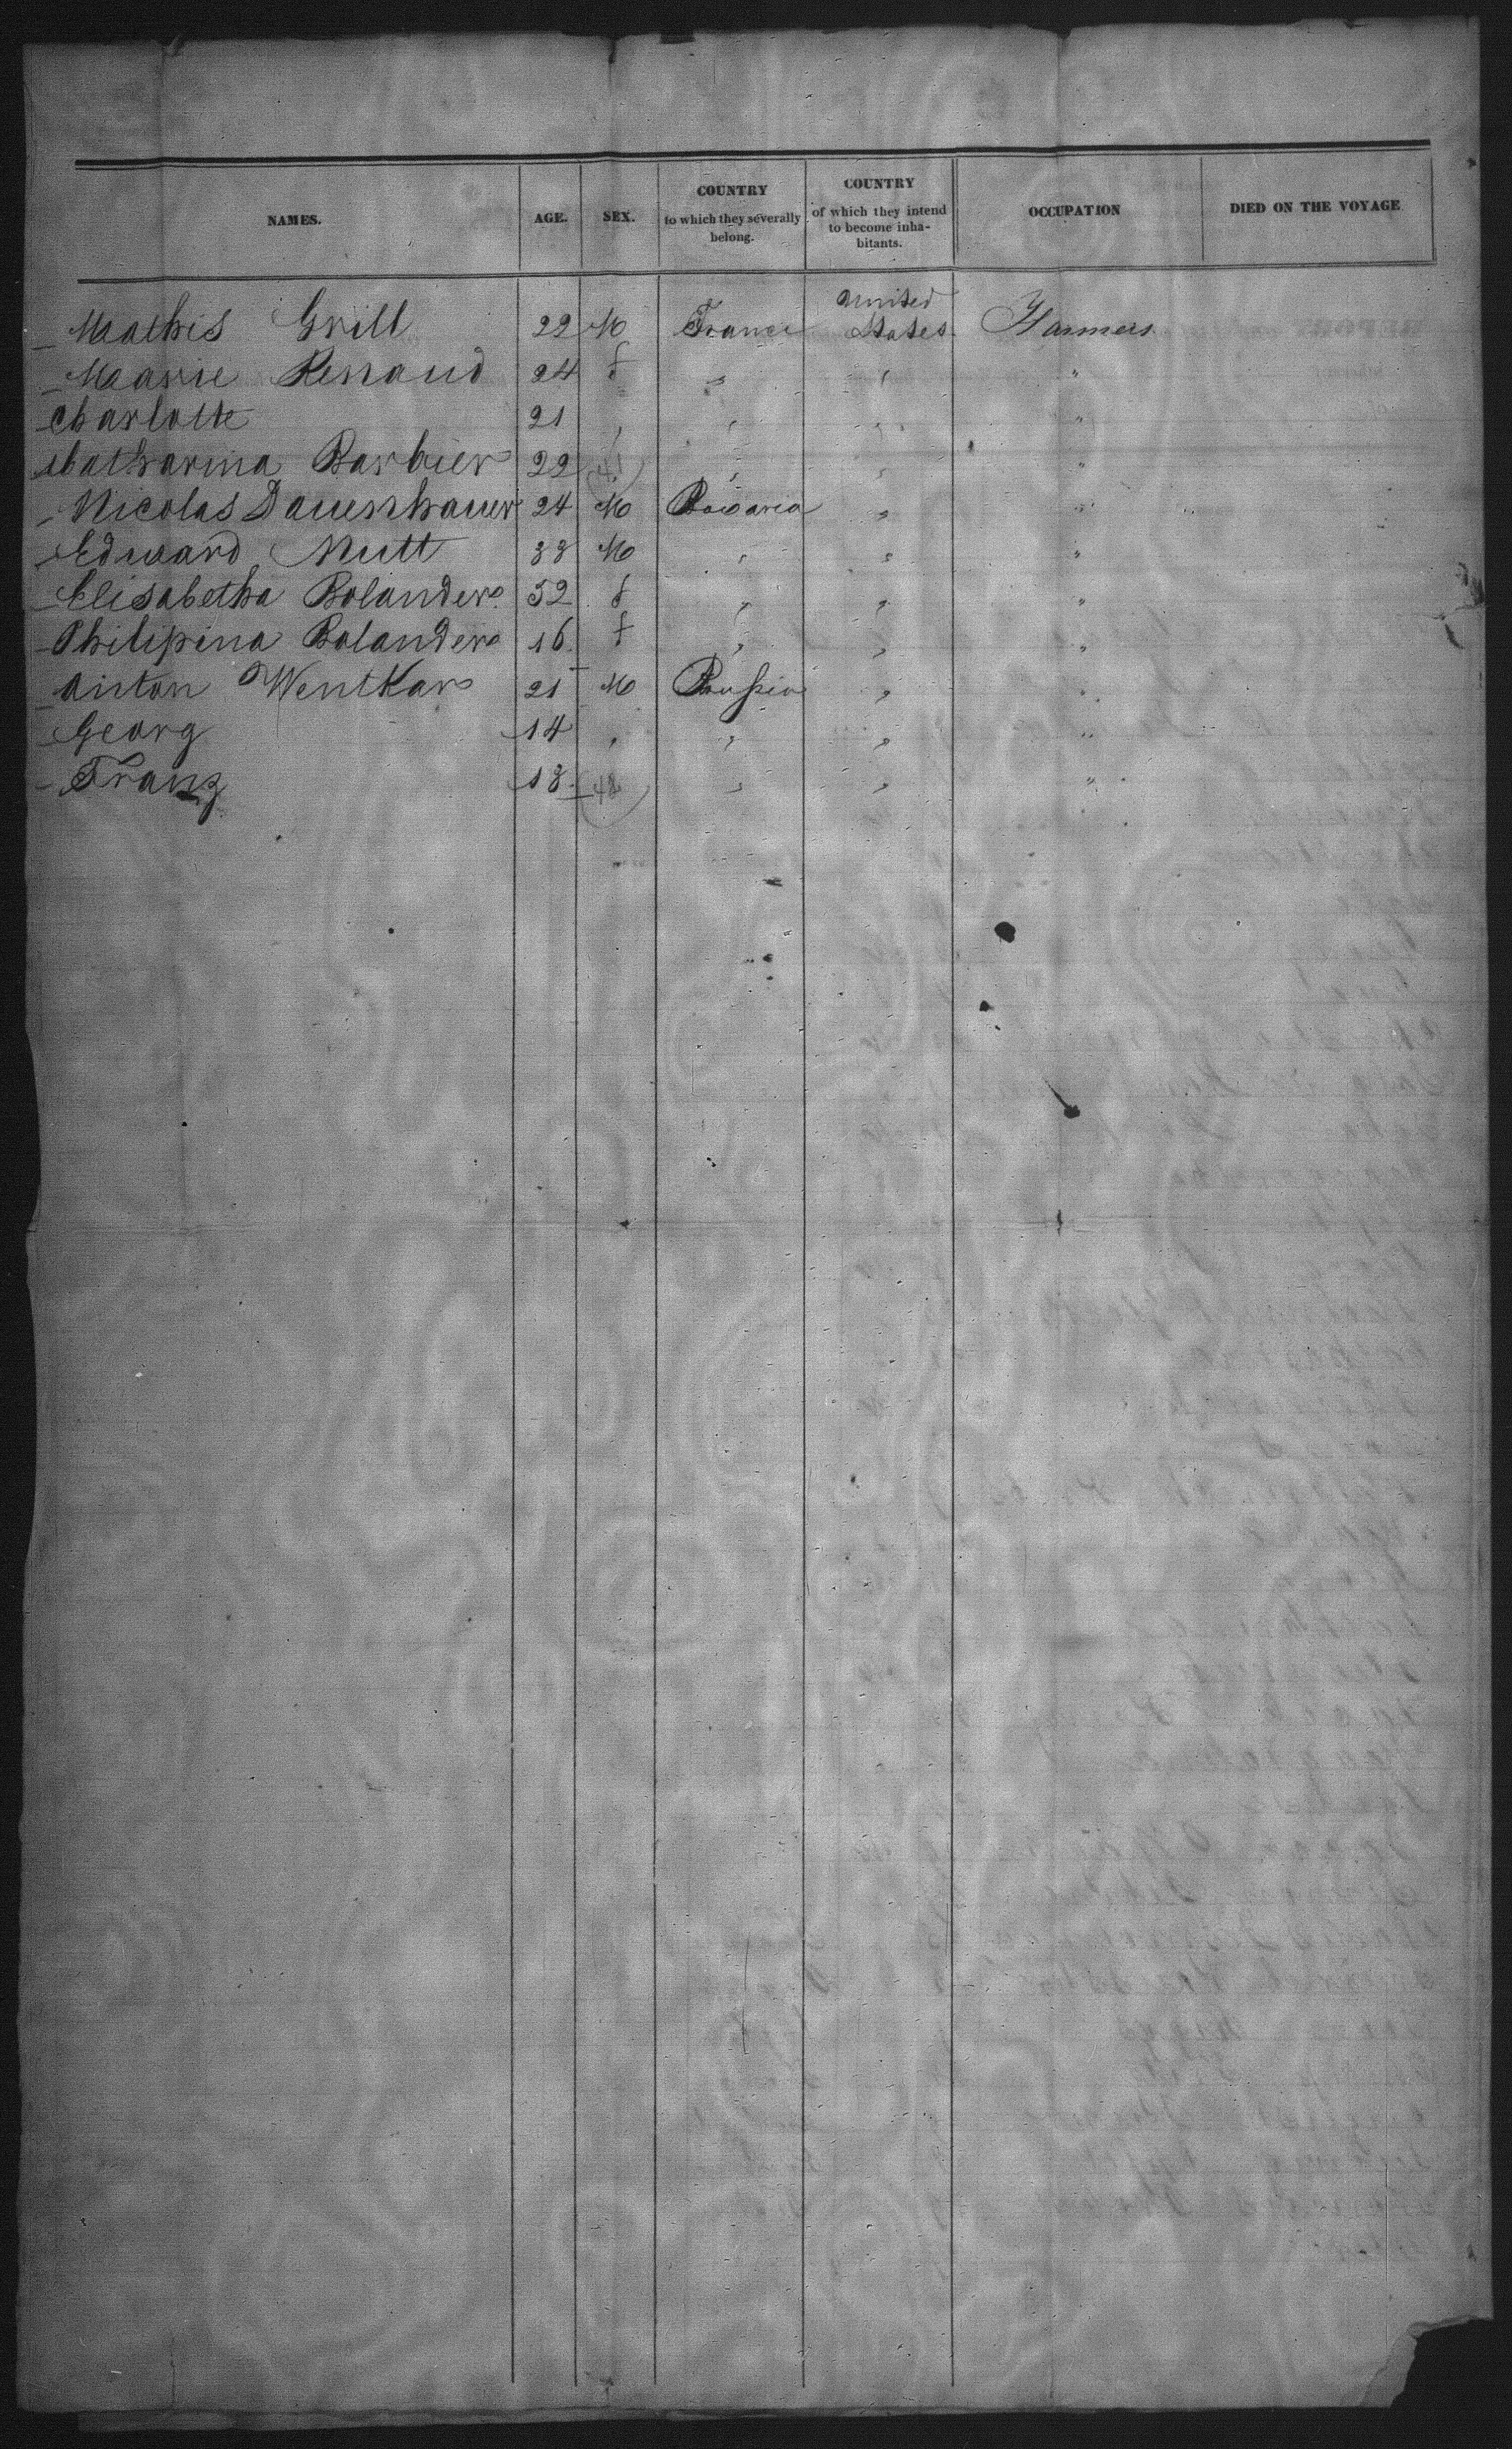 NAMES. AGE. SEX. COUNTRY to which they severally belong. COUNTRY of which they intend to become inhabitants. OCCUPATION DIED ON THE VOYAGE
Mathis Grill 22 M France United States Farmers
Marie Renaud 24 f " " "
Charlotte 21 " " " "
Catharina Barbier 22 " " "
Nicolas Dauenhauer 24 M Bavaria " "
Edward Mutt 33 M " " "
Elisabetha Bolander 52 f " " "
Philipina Bolander 16 f " " "
Anton Wentkar 21 M Prussia " "
Georg 14 " " " "
Franz 18 (48) " " "